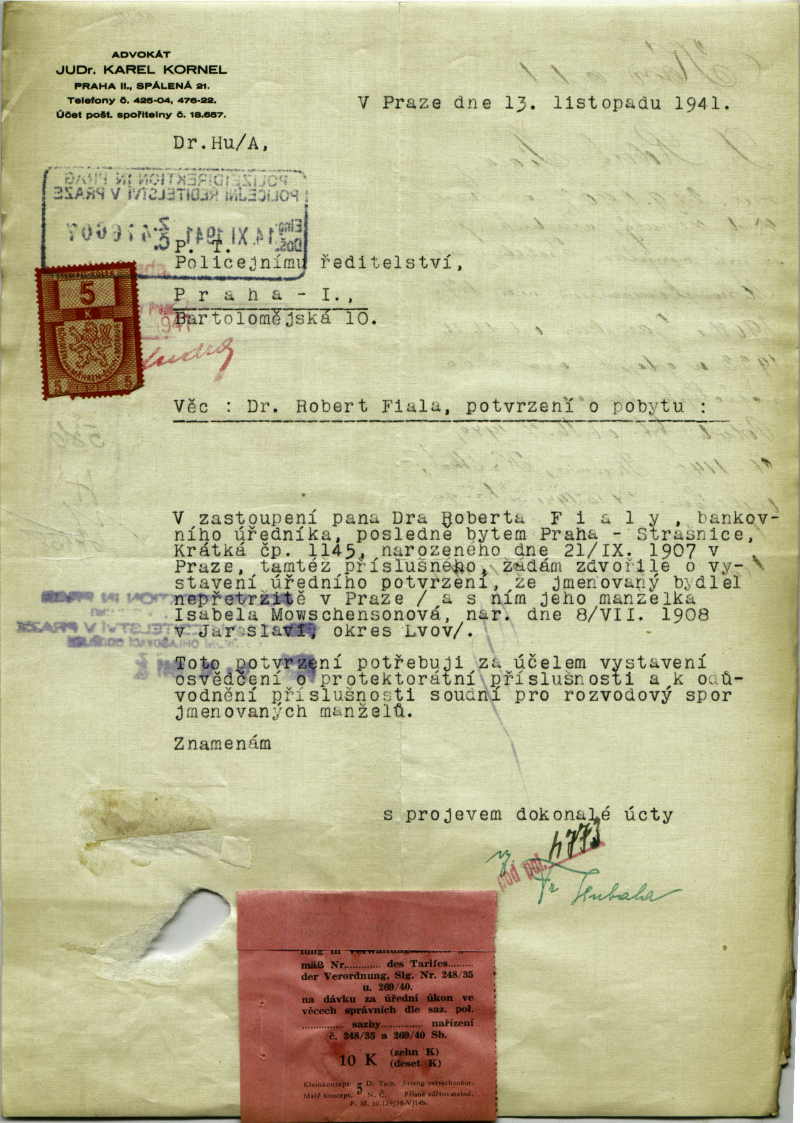 ADVOKÁT
JUDr. KAREL KORNEL
PRAHA II., SPÁLENÁ 21.
Telefony č. 425-04, 476-22.
Účet pošt. spořitelny č. 18.667.
V Praze dne 13. listopadu 1941.
Dr.Hu/A,
POLIZEIDIREKTION IN PRAG
POLICEJNÍ ŘEDITELSTVÍ V PRAZE
14. XI 1941
P. T.
Policejnímu ředitelství,
Praha-I.,
Bartolomějská 10.
5
K
5 5
Věc : Dr. Robert Fiala, potvrzení o pobytu :
V zastoupení pana Dra Roberta F i a l y , bankov-
ního úředníka, posledně bytem Praha - Strašnice,
Krátká čp. 1145, narozeného dne 21/IX. 1907 v
Praze, tamtéž příslušného, žádám zdvořile o vy-
stavení úředního potvrzení, že jmenovaný bydlel
nepřetržitě v Praze / a s ním jeho manželka
Isabela Mowschensonová, nar. dne 8/VII. 1908
v Jaroslavi, okres Lvov/.
Toto potvrzení potřebuji za účelem vystavení
osvědčení o protektorátní příslušnosti a k odů-
vodnění příslušnosti soudní pro rozvodový spor
jmenovaných manželů.
Znamenám
s projevem dokonalé úcty
mäß Nr............ des Tarifes.........
der Verordnung, Slg. Nr. 248/35
u. 269/40.
na dávku za úřední úkon ve
věcech správních dle saz. pol.
............... sazby............... nařízení
č. 248/35 a 269/40 Sb.
10 K (zehn K)
(deset K)